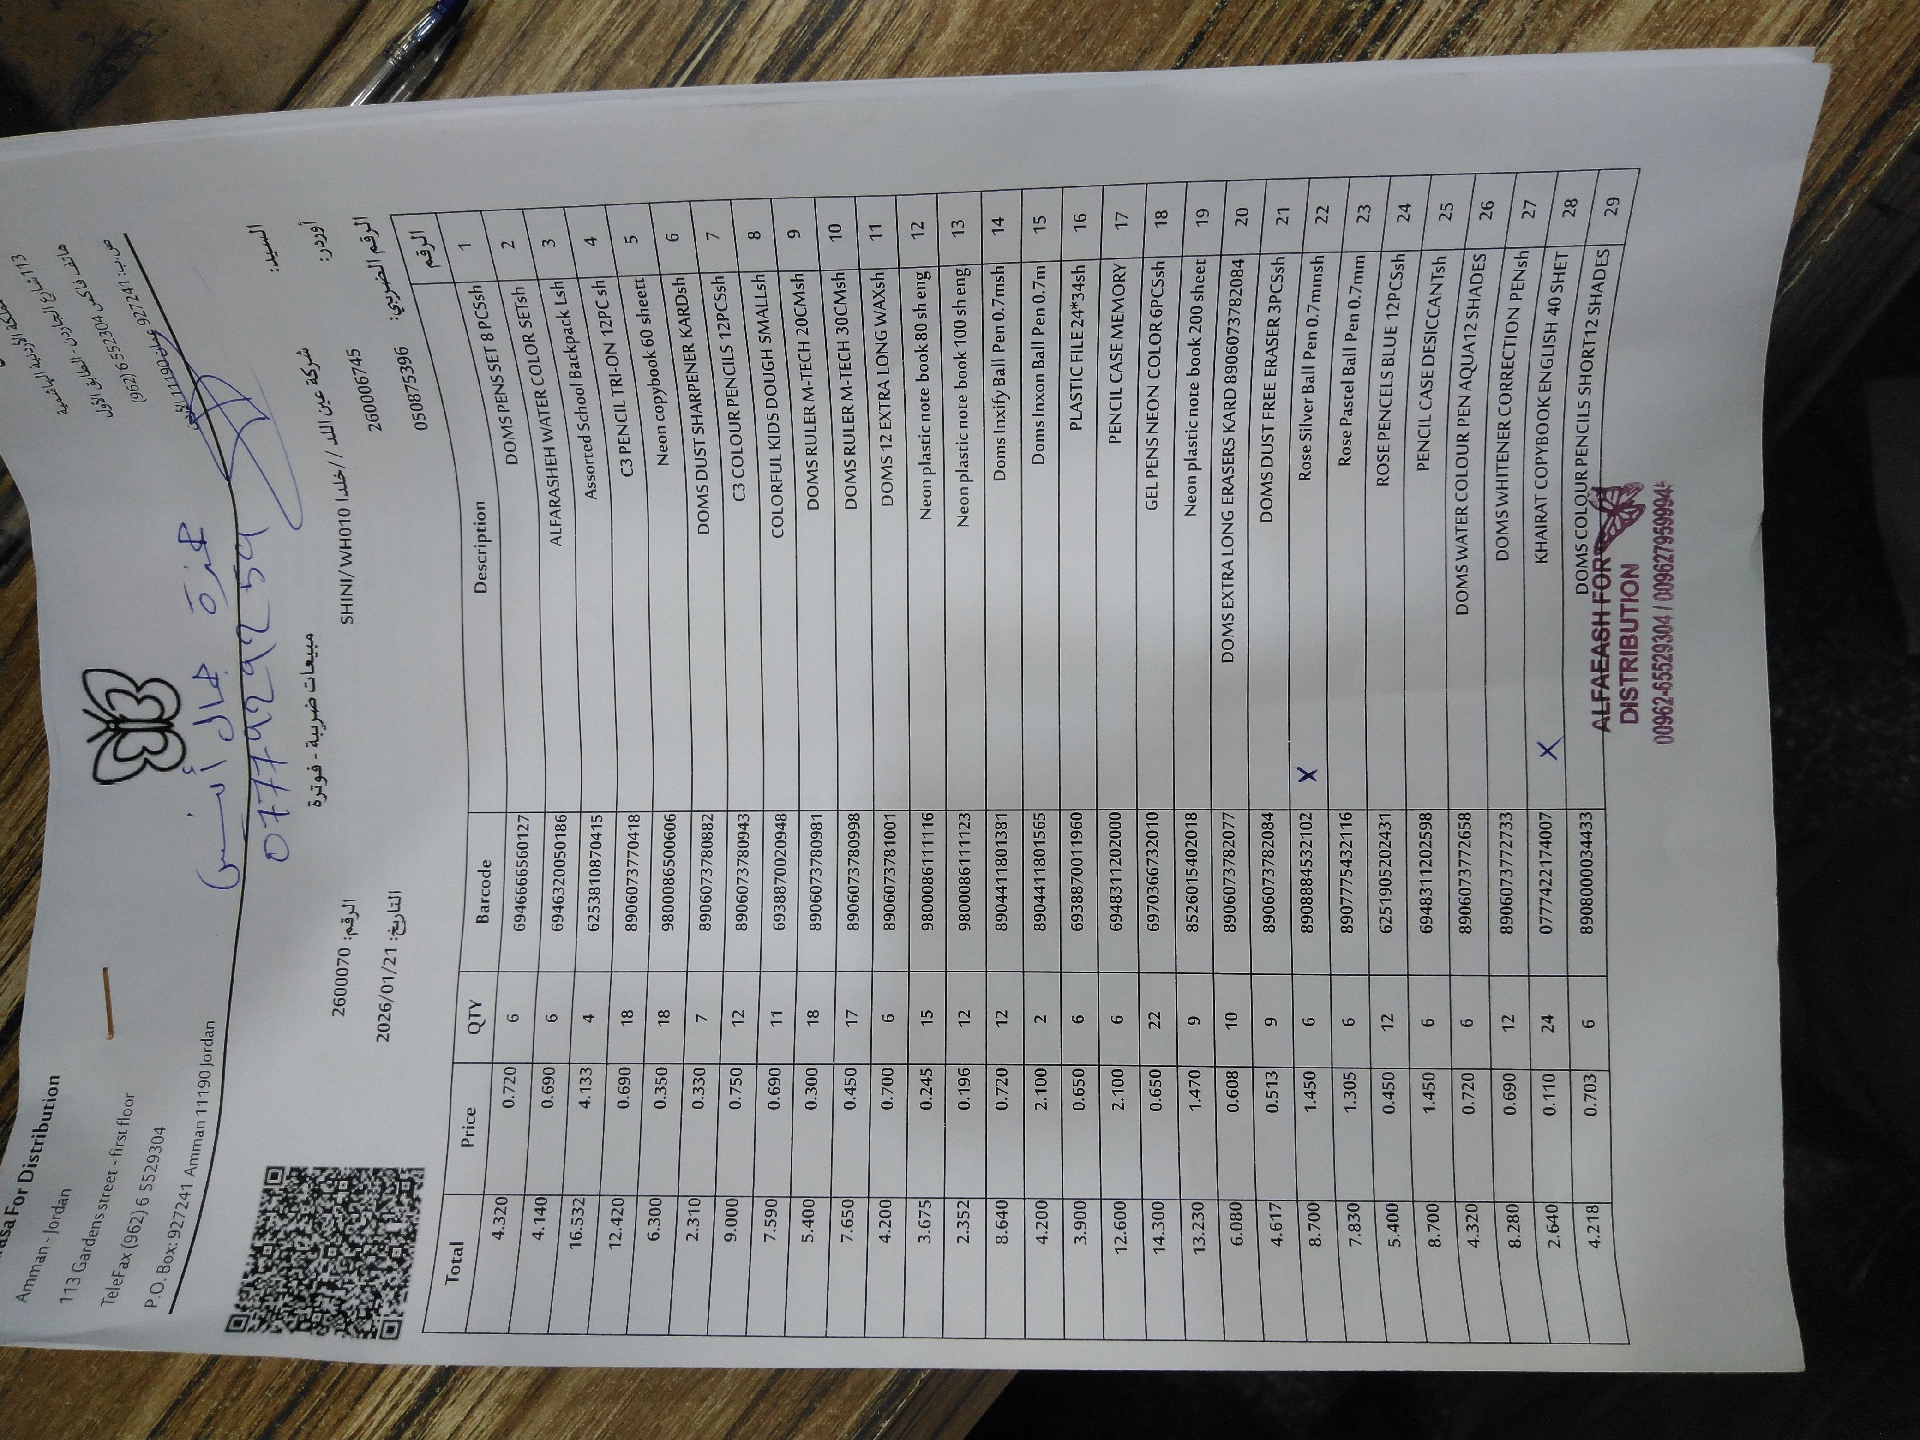 For Distribution
Amman - Jordan
113 Gardens street - first floor
TeleFax (962) 6 5529304
P.O. Box: 927241 Amman 11190 Jordan
113 شارع الجاردن - الطابق الأول
هاتف فاكس 5529304 6 (962)
ص.ب: 927241 عمان 11190 الأردن
جمال أنيس
0777929259
مبيعات ضريبية - فوترة
الرقم: 2600070
التاريخ: 2026/01/21
السيد: شركة عين اللد // خلدا SHINI/WH010
أوردر: 260006745
الرقم الضريبي: 050875396
Total Price QTY Barcode Description الرقم
4.320 0.720 6 6946666560127 DOMS PENS SET 8 PCSsh 1
4.140 0.690 6 6946320050186 ALFARASHEH WATER COLOR SETsh 2
16.532 4.133 4 6253810870415 Assorted School Backpack Lsh 3
12.420 0.690 18 8906073770418 C3 PENCIL TRI-ON 12PC sh 4
6.300 0.350 18 9800086500606 Neon copybook 60 sheett 5
2.310 0.330 7 8906073780882 DOMS DUST SHARPENER KARDsh 6
9.000 0.750 12 8906073780943 C3 COLOUR PENCILS 12PCSsh 7
7.590 0.690 11 6938870020948 COLORFUL KIDS DOUGH SMALLsh 8
5.400 0.300 18 8906073780981 DOMS RULER M-TECH 20CMsh 9
7.650 0.450 17 8906073780998 DOMS RULER M-TECH 30CMsh 10
4.200 0.700 6 8906073781001 DOMS 12 EXTRA LONG WAXsh 11
3.675 0.245 15 9800086111116 Neon plastic note book 80 sh eng 12
2.352 0.196 12 9800086111123 Neon plastic note book 100 sh eng 13
8.640 0.720 12 8904411801381 Doms Inxify Ball Pen 0.7msh 14
4.200 2.100 2 8904411801565 Doms Inxon Ball Pen 0.7m 15
3.900 0.650 6 6938870011960 PLASTIC FILE 24*34sh 16
12.600 2.100 6 6948311202000 PENCIL CASE MEMORY 17
14.300 0.650 22 6970366732010 GEL PENS NEON COLOR 6PCSsh 18
13.230 1.470 9 8526015402018 Neon plastic note book 200 sheet 19
6.080 0.608 10 8906073782077 DOMS EXTRA LONG ERASERS KARD 8906073782084 20
4.617 0.513 9 8906073782084 DOMS DUST FREE ERASER 3PCSsh 21
8.700 1.450 6 8908884532102 X Rose Silver Ball Pen 0.7mmsh 22
7.830 1.305 6 8907775432116 Rose Pastel Ball Pen 0.7mm 23
5.400 0.450 12 6251905202431 ROSE PENCELS BLUE 12PCSsh 24
8.700 1.450 6 6948311202598 PENCIL CASE DESICCANTsh 25
4.320 0.720 6 8906073772658 DOMS WATER COLOUR PEN AQUA12 SHADES 26
8.280 0.690 12 8906073772733 DOMS WHITENER CORRECTION PENsh 27
2.640 0.110 24 0777422174007 X KHAIRAT COPYBOOK ENGLISH 40 SHET 28
4.218 0.703 6 8908000034433 DOMS COLOUR PENCILS SHORT12 SHADES 29
ALFAEASH FOR
DISTRIBUTION
00962-65529304 / 00962795999